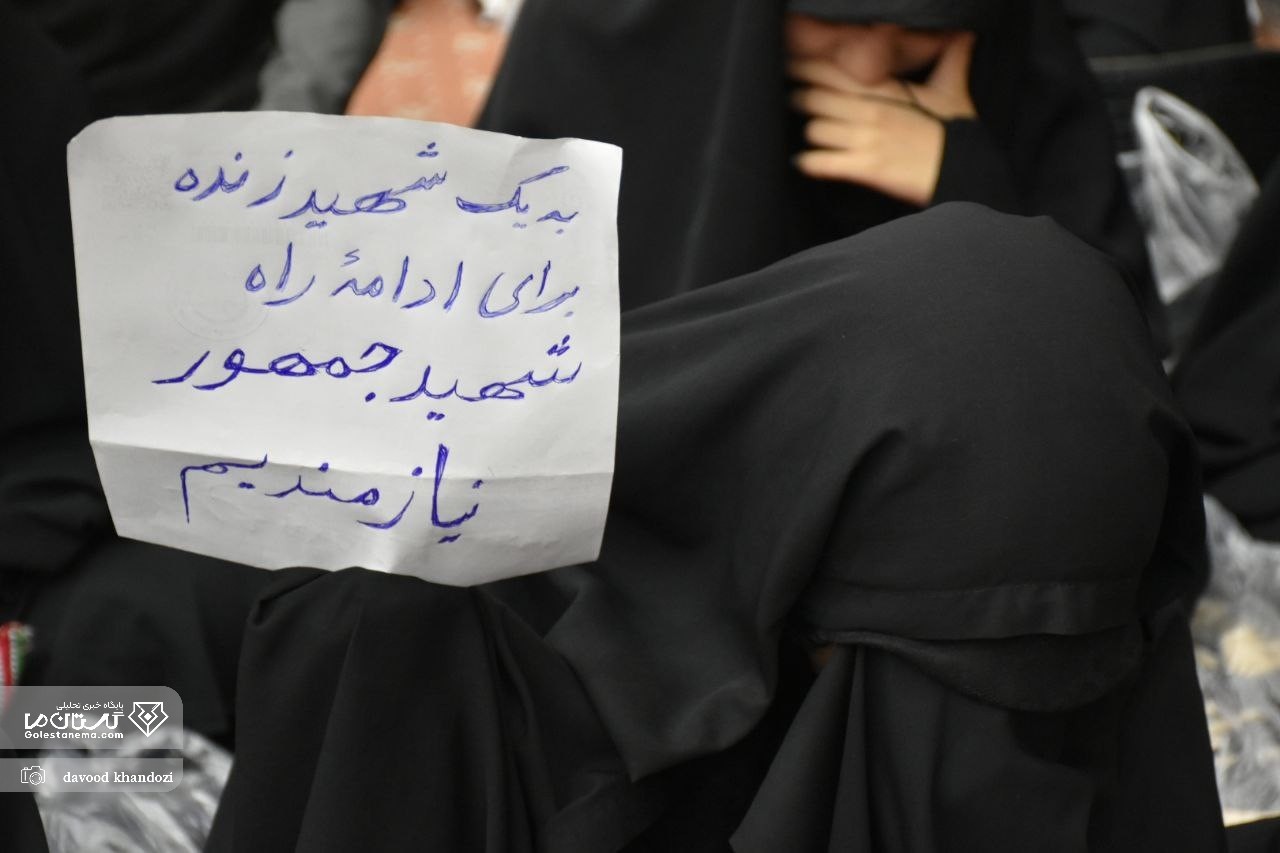 به یک شهید زنده
برای ادامهٔ راه
شهید جمهور
نیازمندیم
پایگاه خبری تحلیلی
گلستان ما
Golestanema.com
davood khandozi